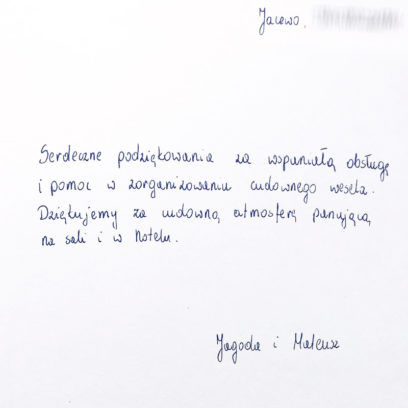 Jacewo,
Serdeczne podziękowania za wspaniałą obsługę
i pomoc w zorganizowaniu cudownego wesela.
Dziękujemy za cudowną atmosferę panującą
na sali i w hotelu.
Jagoda i Mateusz